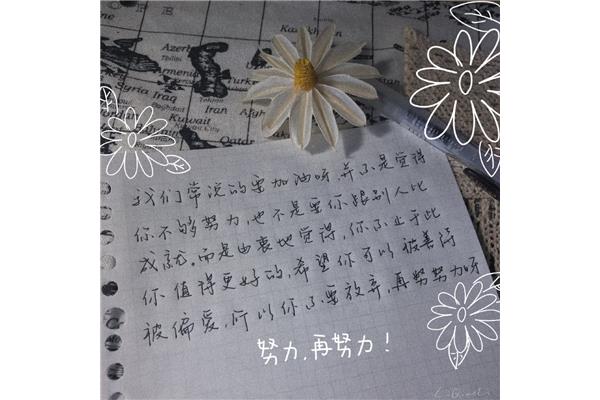 Azerb
Tbilisi
Armenia
Turk
Syria Iraq
Tehran
Baghdad
Iran
Afg
Kuwait
Kuwait City
Qatar
我们常说的要加油呀,并不是觉得
你不够努力,也不是要你跟别人比
成就。而是由衷地觉得,你不止于此
你值得更好的,希望你可以被善待
被偏爱,所以你不要放弃,再努努力呀
努力,再努力!